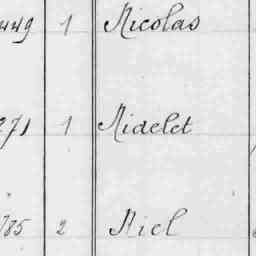 449 1 Nicolas
271 1 Nidelet
785 2 Niel